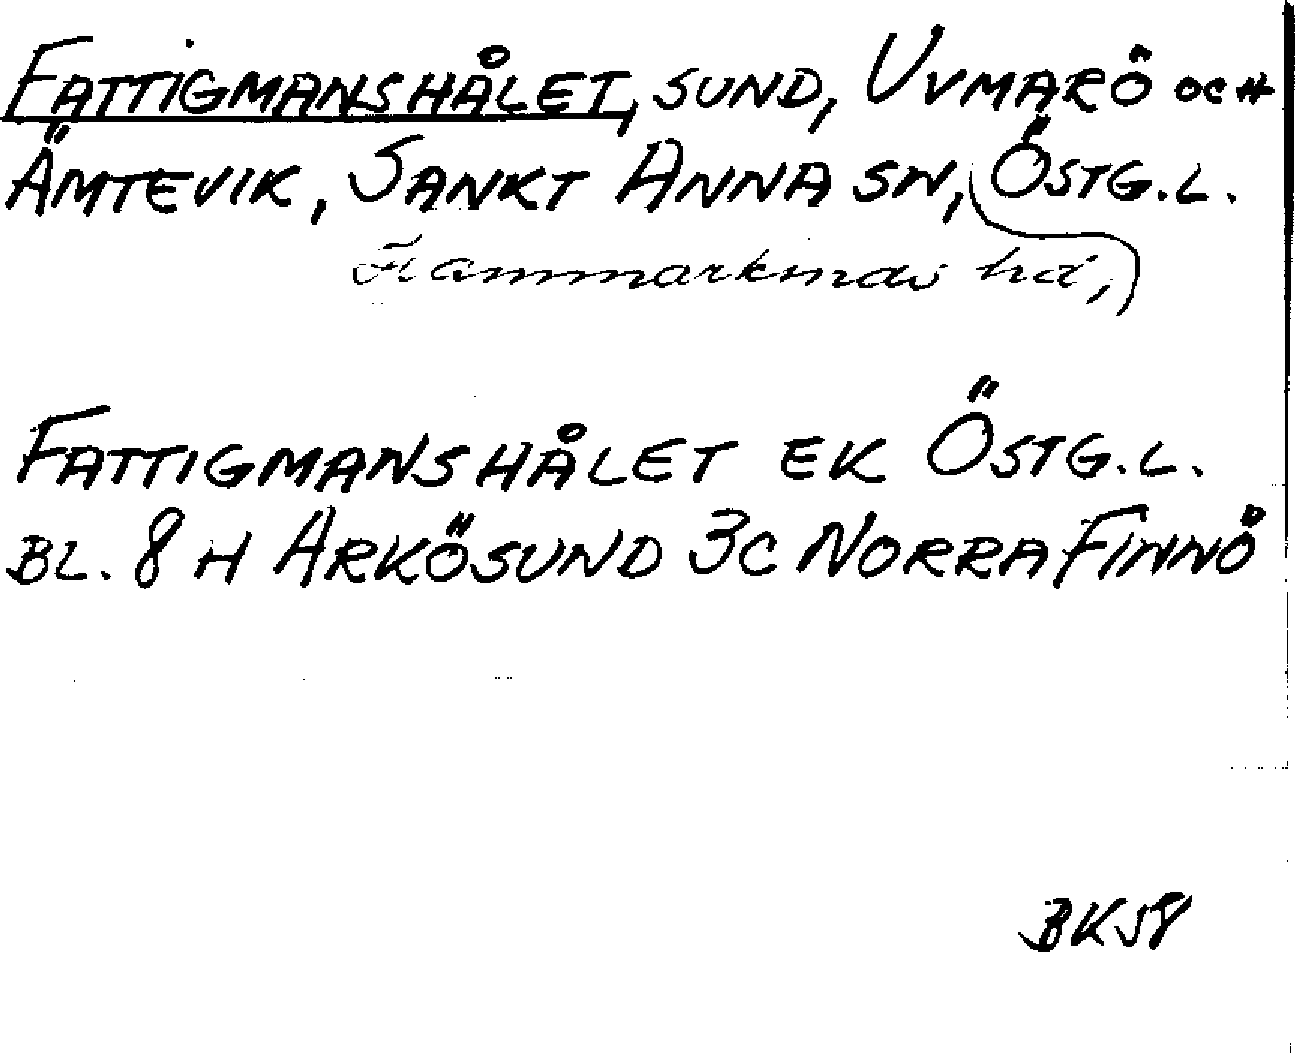 FATTIGMANSHÅLET, SUND, UVMARÖ OCH
ÄMTEVIK, SANKT ANNA SN, ÖSTG.L.
Hammarkinds hd,
FATTIGMANSHÅLET EK ÖSTG.L.
BL. 8 H ARKÖSUND 3C NORRA FINNÖ
BK58